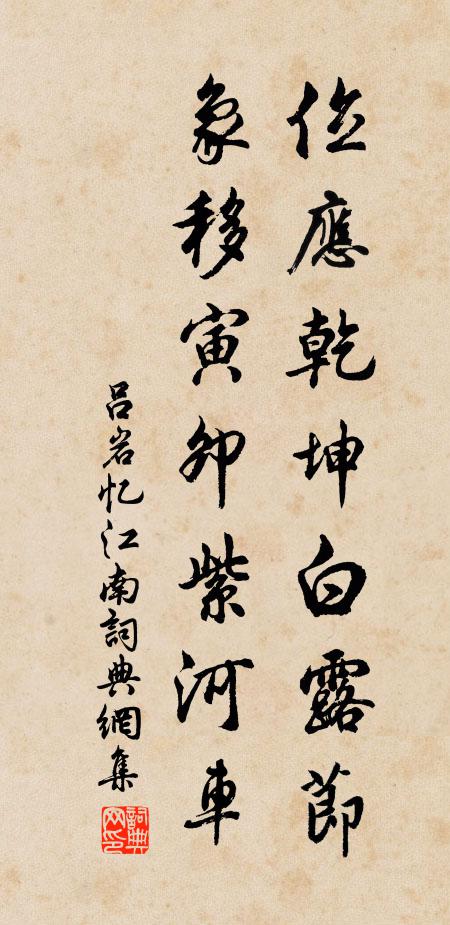 位應乾坤白露節
象移寅卯紫河車
吕岩忆江南詞典網集
詞典网印